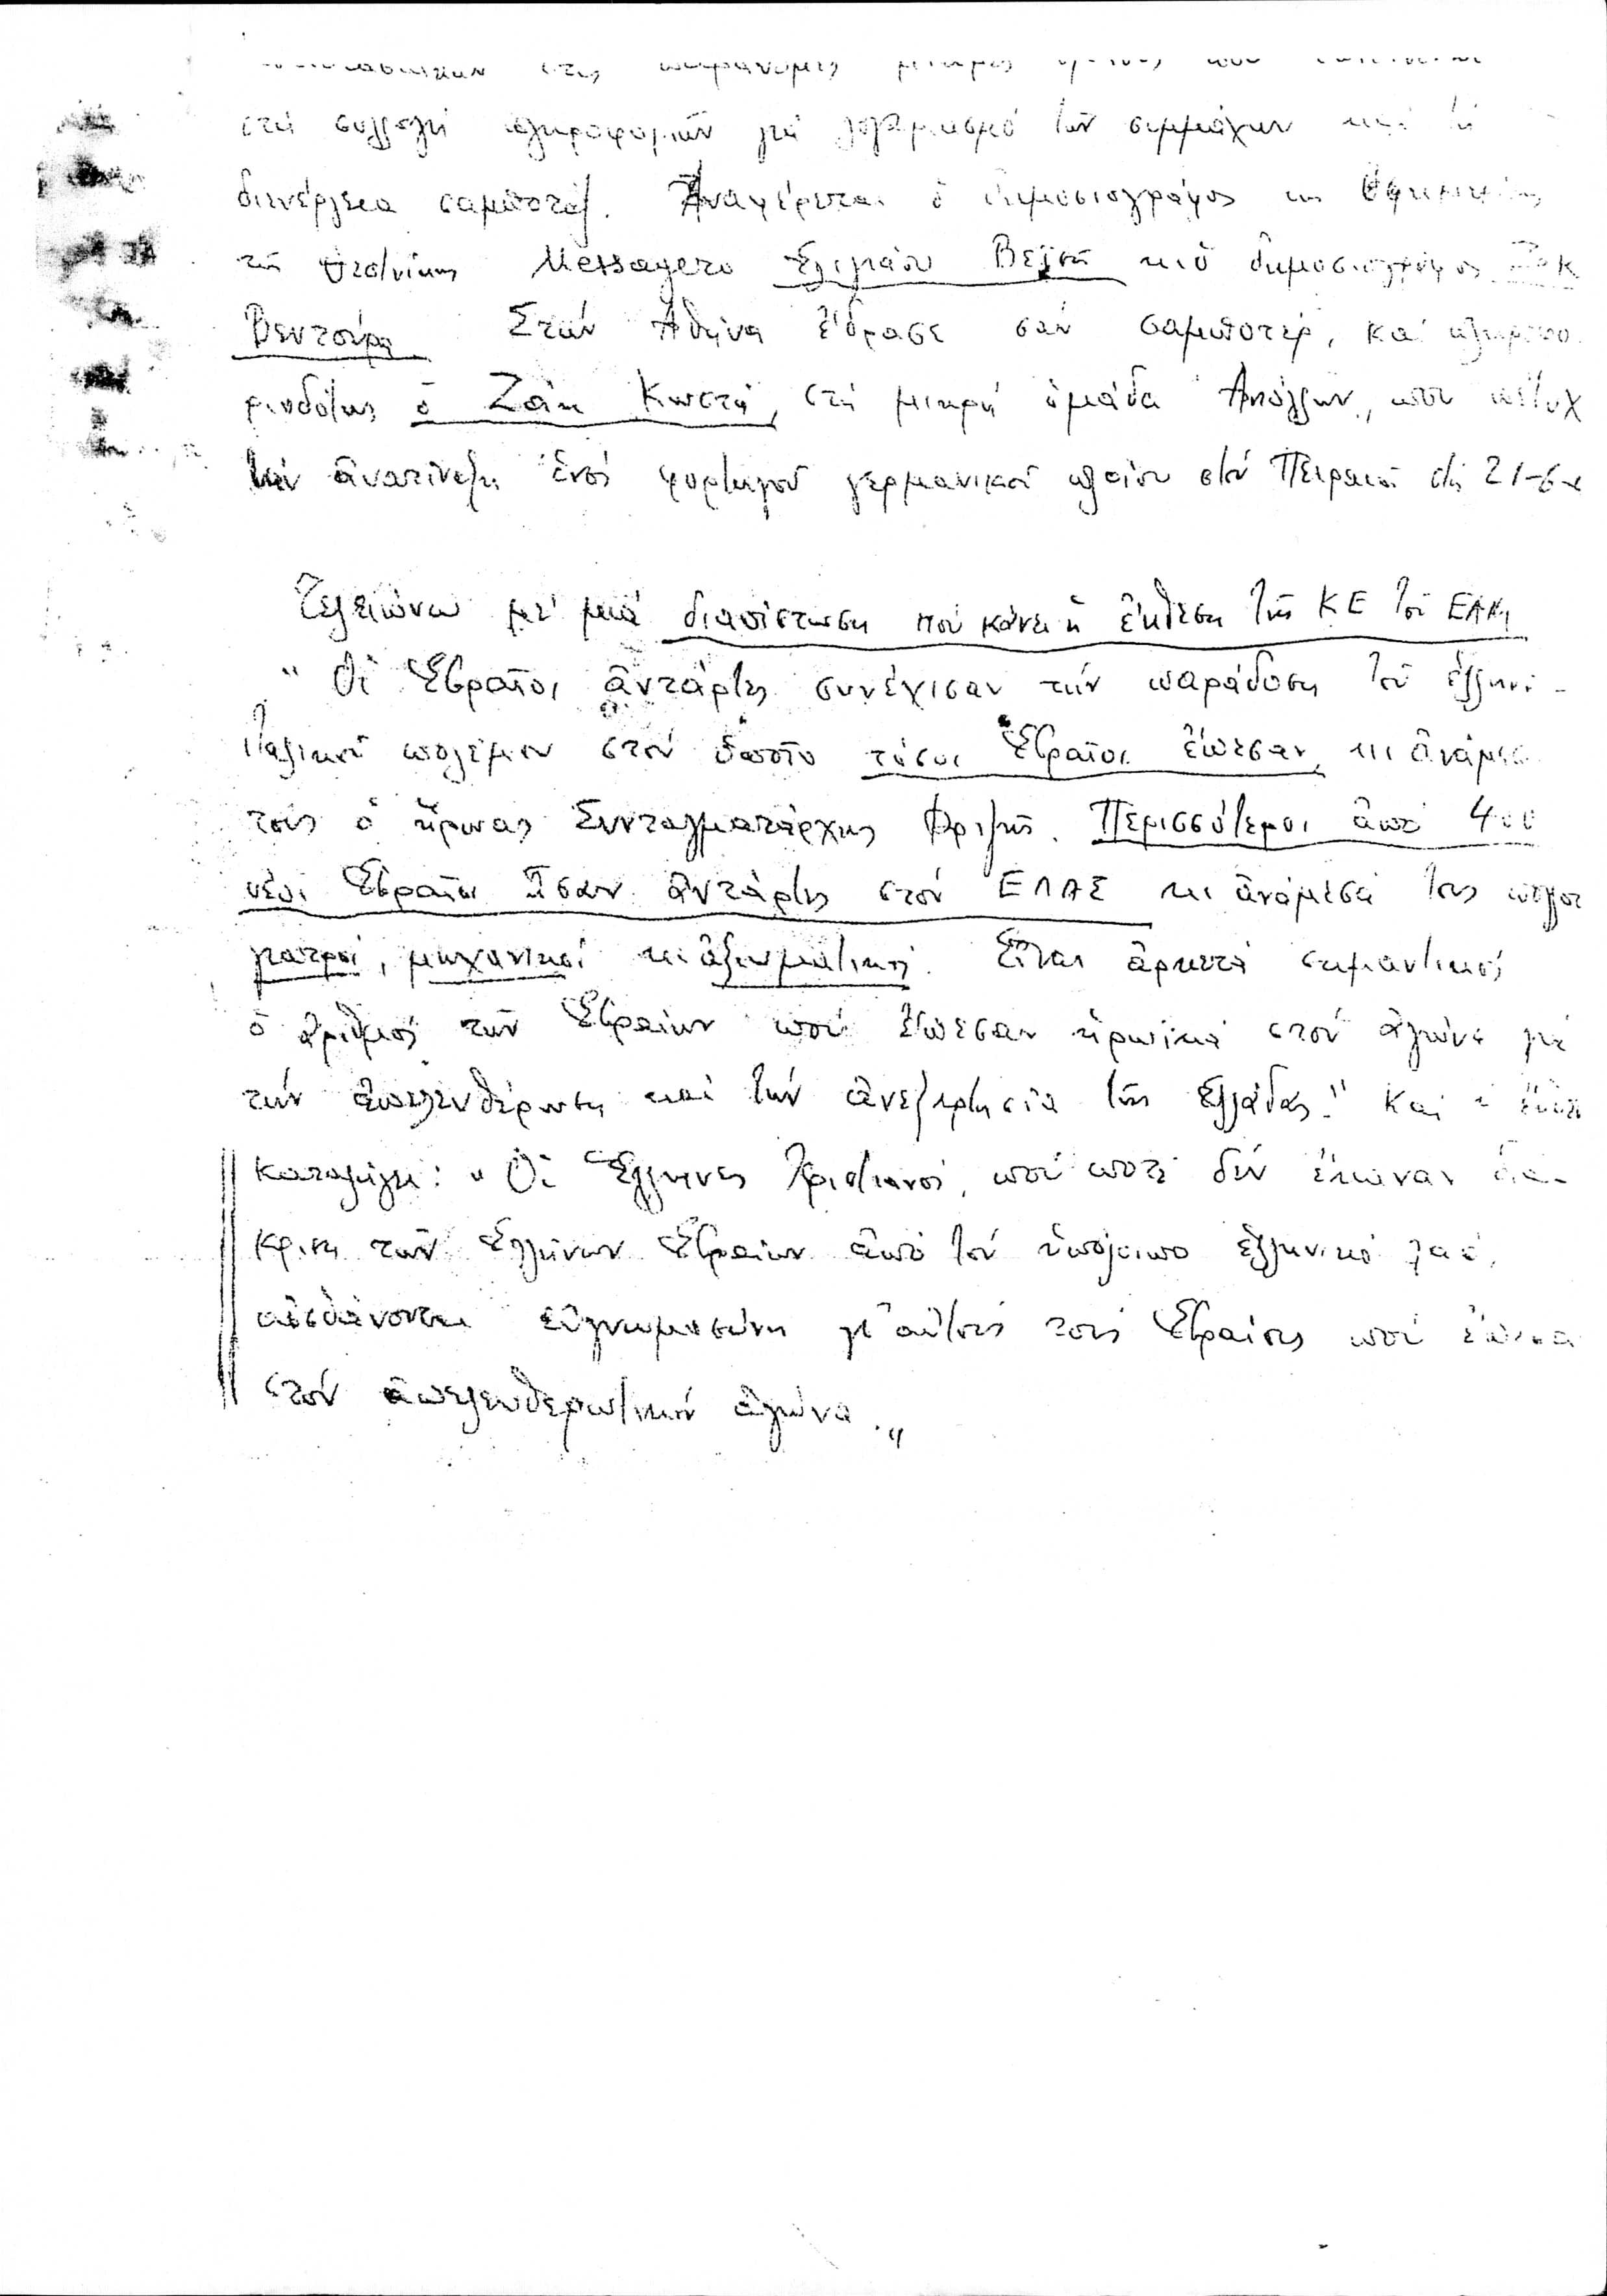 στις παράνομες μικρές
στή συλλογή πληροφοριῶν γιά λογαριασμό τῶν συμμάχων καί τή
διενέργεια σαμποτάζ. Ἀναφέρεται ὁ δημοσιογράφος τῆς ἐφημερίδας
τῆς Θεσ/νίκης Messagero Ἐλιμάου Βεϊσή κι ὁ δημοσιογράφος Ζάκ
Βεντούρα Στήν Ἀθήνα ἔδρασε σάν σαμποτέρ, καί πληροφο
ριοδότης ὁ Ζάκ Κωστή, στή μικρή ὁμάδα Ἀπόλλων, πού πέτυχ
τήν ἀνατίναξη ἑνός φορτηγοῦ γερμανικοῦ πλοίου στόν Πειραιᾶ στίς 21-6-
Τελειώνω μέ μιά διαπίστωση πού κάνει ἡ ἔκθεση τῆς ΚΕ τοῦ ΕΑΜ
" Οἱ Ἑβραῖοι ἀντάρτες συνέχισαν τήν παράδοση τοῦ ἑλληνο-
ϊταλικοῦ πολέμου στόν ὁποῖο τόσοι Ἑβραῖοι ἔπεσαν, κι ἀνάμεσα
τους ὁ ἥρωας Συνταγματάρχης Φριζῆς. Περισσότεροι ἀπό 400
νέοι Ἑβραῖοι ἦσαν ἀντάρτες στόν ΕΛΑΣ κι ἀνάμεσά τους πολλοί
γιατροί, μηχανικοί κι ἀξιωματικοί. Εἶναι ἀρκετά σημαντικός
ὁ ἀριθμός τῶν Ἑβραίων πού ἔπεσαν ἡρωϊκά στόν ἀγώνα γιά
τήν ἀπελευθέρωση καί τήν ἀνεξαρτησία τῆς Ἑλλάδας." Καί ἡ ἔκθε
καταλήγει: " Οἱ Ἕλληνες Χριστιανοί, πού ποτέ δέν ἔκαναν διά-
κριση τῶν Ἑλλήνων Ἑβραίων ἀπό τόν ὑπόλοιπο ἑλληνικό λαό,
αἰσθάνονται εὐγνωμοσύνη γι' αὐτούς τούς Ἑβραίους πού ἔπεσα
στόν ἀπελευθερωτικόν ἀγώνα."